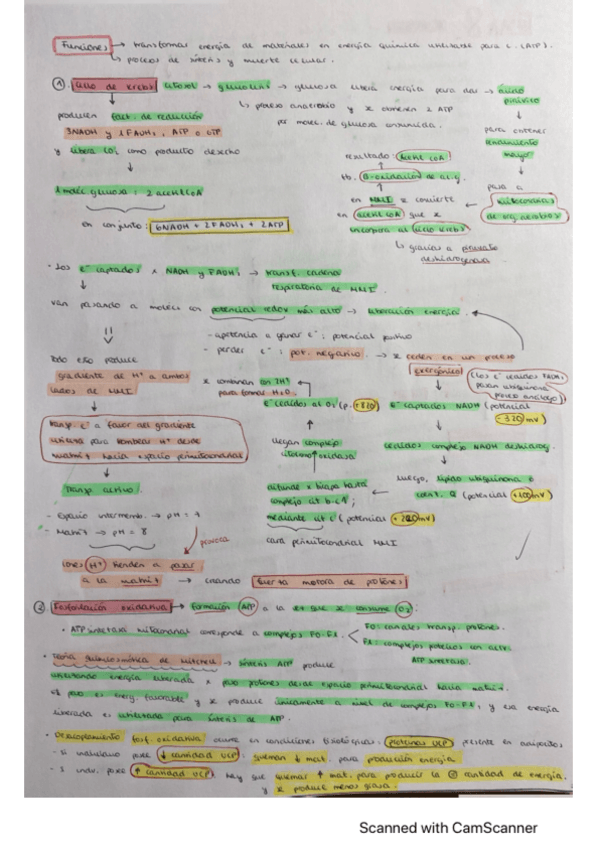 Funciones → transformar energía de materiales en energía química utilizable para c. (ATP).
↳ procesos de síntesis y muerte celular.
① Ciclo de Krebs citosol → glucolisis → glucosa libera energía para dar → ácido pirúvico
↳ proceso anaerobio y se obtienen 2 ATP por moléc. de glucosa consumida.
producen fact. de reducción
3NADH y 1FADH₂, ATP o GTP
y libera CO₂ como producto desecho
para obtener rendimiento mayor
pasa a mitocondrias de org. aerobios
1 moléc glucosa: 2 acetil CoA
en conjunto: 6NADH + 2FADH₂ + 2ATP
resultado: acetil CoA
tb. β-oxidación de ac. g.
en MMI se convierte
en acetil CoA que se
incorpora al ciclo Krebs
↳ gracias a piruvato deshidrogenasa
• Los e⁻ captados x NADH y FADH₂ → transf. cadena respiratoria de MMI.
van pasando a moléc con potencial redox más alto → liberación energía.
- apetencia a ganar e⁻: potencial positivo
- perder e⁻: pot. negativo. → se ceden en un proceso exergónico
(Los e⁻ cedidos FADH₂ pasan ubiquinona proceso análogo)
Todo eso produce
gradiente de H⁺ a ambos
lados de MMI
transp. e⁻ a favor del gradiente
utiliza para bombear H⁺ desde
matriz hacia espacio perimitocondrial
transp. activo.
- Espacio intermemb. → pH = 7
- Matriz → pH = 8
provoca
iones H⁺ tienden a pasar
a la matriz → creando fuerza motora de protones
se combinan con 2H⁺
para formar H₂O.
e⁻ cedidos al O₂ (p. +820)
e⁻ captados NADH (potencial -320 mV)
cedidos complejo NADH deshidrog.
luego, lípido ubiquinona o coenz. Q (potencial +100mV)
llegan complejo
citocromo oxidasa
difunde x bicapa hasta
complejo cit b-c1;
mediante cit c (potencial +220mV)
cara perimitocondrial MMI
② Fosforilación oxidativa → Formación ATP a la vez que se consume O₂:
• ATP sintetasa mitocondrial corresponde a complejos F0-F1.
F0: canales transp. protones.
F1: complejos proteicos con activ. ATP sintetasa.
• Teoría quimiosmótica de Mitchell → síntesis ATP produce
utilizando energía liberada x paso protones desde espacio perimitocondrial hacia matriz.
el paso es energ. favorable y se produce únicamente a nivel de complejos F0-F1, y esa energía
liberada es utilizada para síntesis de ATP.
• Desacoplamiento fosf. oxidativa ocurre en condiciones fisiológicas: proteínas UCP presente en adipocitos
- Si individuo posee ↓ cantidad UCP: queman ↓ mat. para producción energía
- Si indiv. posee ↑ cantidad UCP, hay que quemar ↑ mat. para producir la = cantidad de energía.
y se produce menos grasa.
Scanned with CamScanner